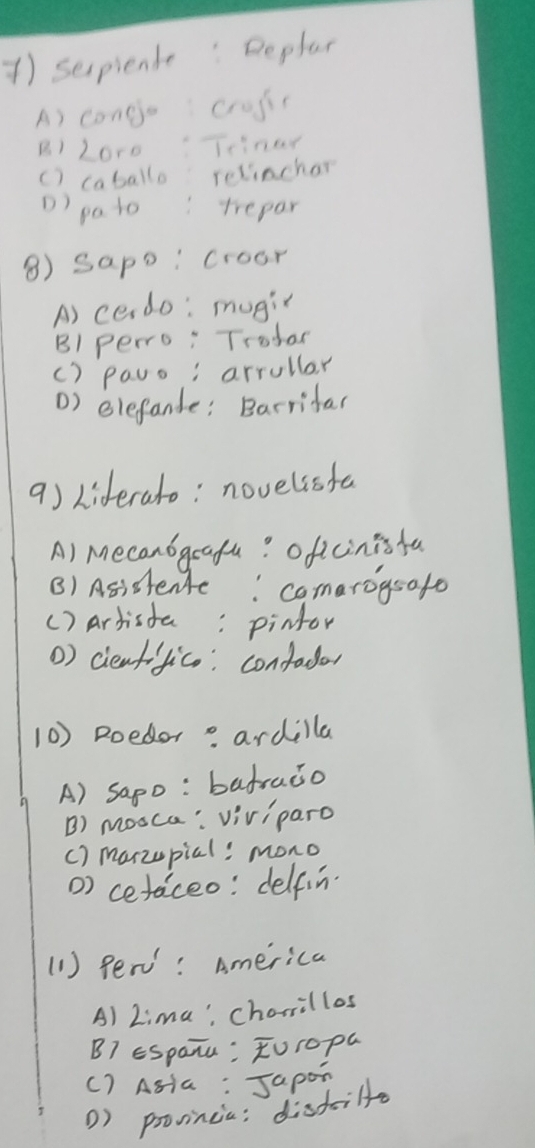 7) Serpiente : Reptar
A) conejo : crujir
B) Loro : Trinar
C) caballo : relinchar
D) pato : trepar
8) Sapo : croar
A) cerdo : mugir
B) perro : Trotar
C) pavo : arrullar
D) elefante : Barritar
9) Literato : novelista
A) Mecanógrafu : oficinista
B) Asistente : camarógrafo
C) Artista : pintor
D) científico : contador
10) Roedor : ardilla
A) Sapo : batracio
B) Mosca : vivíparo
C) Marzupial : Mono
D) cetáceo : delfín.
11) Perú : América
A) Lima : chorrillos
B) España : Europa
C) Asia : Japón
D) provincia : distrito